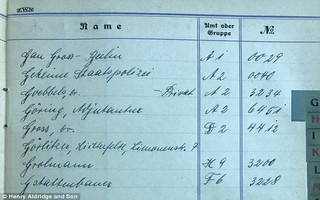 Name Amt oder Gruppe №
Gau Gross-Berlin A 1 0029
Geheime Staatspolizei A 2 0040
Goebbels, Dr. - Privat A 2 3234
Göring, Adjutantur A 2 6451
Gross, Dr. F 2 4412
Görlitzer, Lichterfelde, 7
Grolmann H 9 3200
Gstattenbauer F 6 3228
H
I
K
L
M
© Henry Aldridge and Son